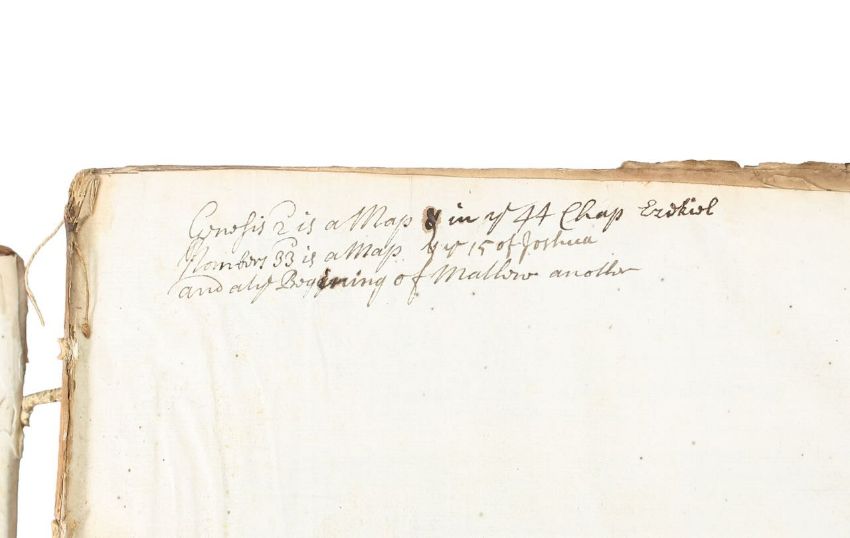 Genesis 2 is a Map & in ye 44 Chap Ezekiel
Numbers 33 is a Map. & ye 15 of Joshua
and at ye Begining of Mathew another